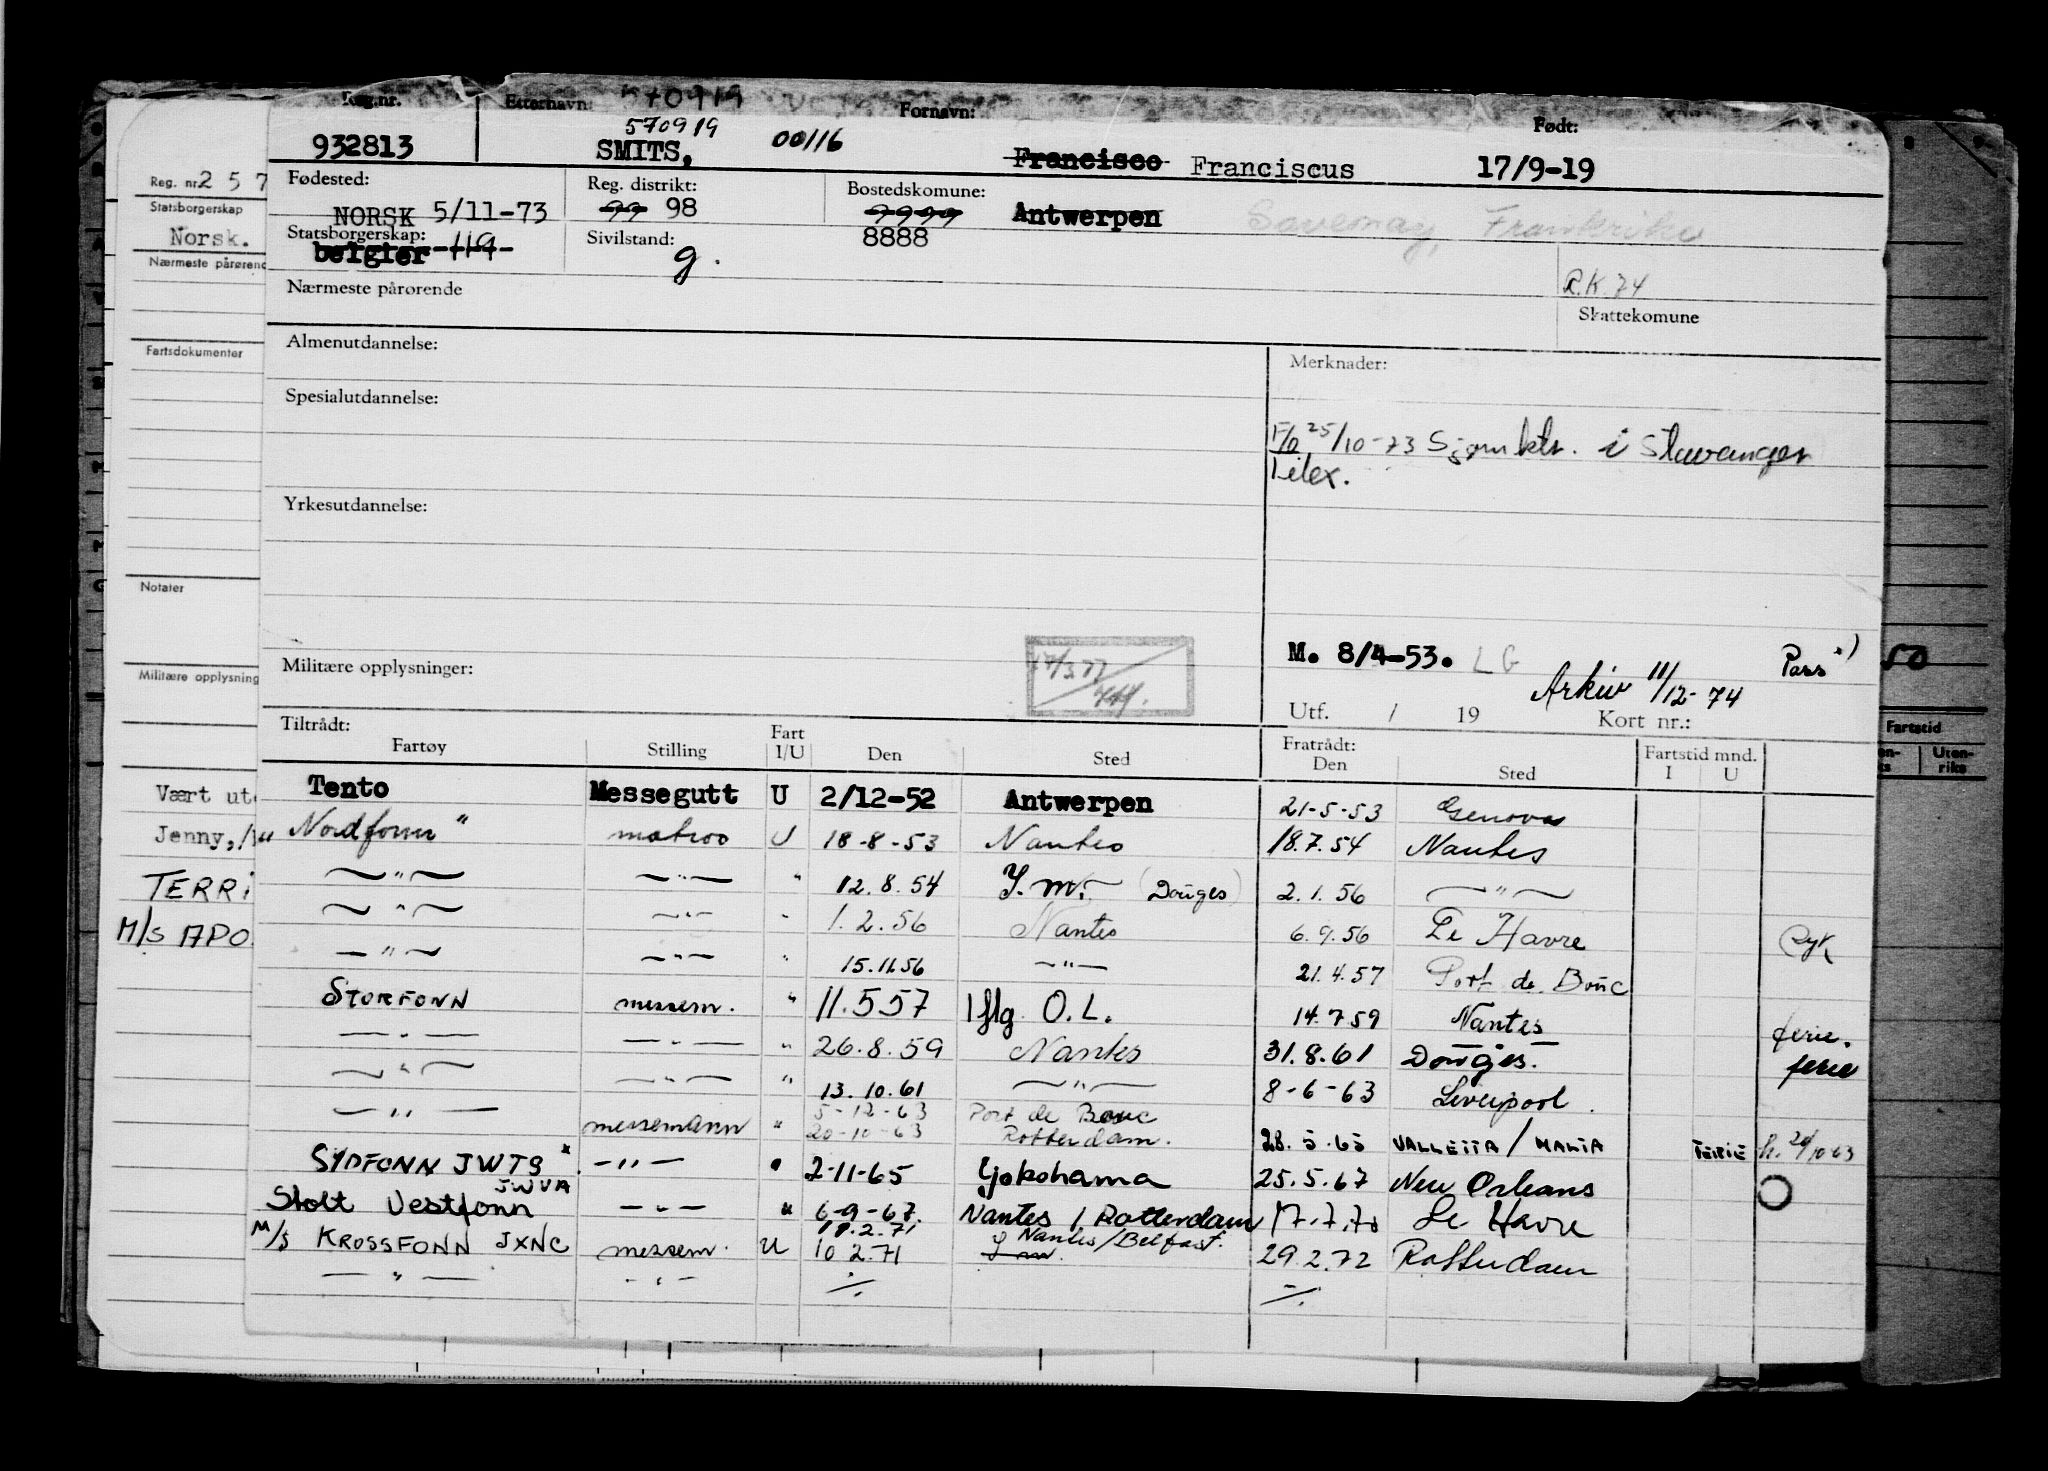 Reg.nr. Etternavn: 570919 Fornavn: Født:
932813 SMITS, 570919 00116 Francisco Franciscus 17/9-19
Fødested: Reg. distrikt: Bostedskomune:
NORSK 5/11-73 99 98 9999 Antwerpen Savenay, Frankrike
Statsborgerskap: Sivilstand: 8888
belgier 119 g.
Nærmeste pårørende R.K. 74
Skattekomune
Almenutdannelse: Merknader:
Spesialutdannelse:
25/10-73 Sjømktr. i Stavanger
Telex.
Yrkesutdannelse:
Militære opplysninger: 17/3.77
M. 8/4-53. LG Pass
Arkiv 11/12-74
Utf. / 19 Kort nr.:
Tiltrådt: Fratrådt:
Fartøy Stilling Fart I/U Den Sted Den Sted Fartstid mnd. I U
Tento Messegutt U 2/12-52 Antwerpen 21-5-53 Genova
Nordfonn " matros U 18-8-53 Nantes 18.7.54 Nantes
—"— —"— " 12.8.54 I.m. (Donges) 2.1.56 —"—
—"— —"— " 1.2.56 Nantes 6.9.56 Le Havre syk
—"— —"— " 15.11.56 —"— 21.4.57 Port de Bouc
STORFONN messem. " 11.5.57 Iflg. O.L. 14.7.59 Nantes ferie.
—"— —"— " 26.8.59 Nantes 31.8.61 Donges. ferie
—"— —"— " 13.10.61 —"— 8-6-63 Liverpool.
—"— messemann " 5-12-63 Port de Bouc
20-10-63 Rotterdam. 28.5.65 VALLETTA / MALTA FERIE h. 20/10-63
SYDFONN JWTS x —"— " 2-11-65 Yokohama 25.5.67 New Orleans
Stolt Vestfonn JWVA —"— " 6-9-67. Nantes / Rotterdam 17.7.70 Le Havre
M/S KROSSFONN JXNC messem. U 18.2.71 10.2.71 Nantes/Belfast. I m. 29.2.72 Rotterdam
—"— —"— ./. ./.
Reg. nr. 2 5 7
Statsborgerskap
Norsk.
Nærmeste pårørend
Fartsdokumenter
Notater
Militære opplysning
Vært ut
Jenny,
TERRI
M/S APO
50
Fartstid
Uten-
riks